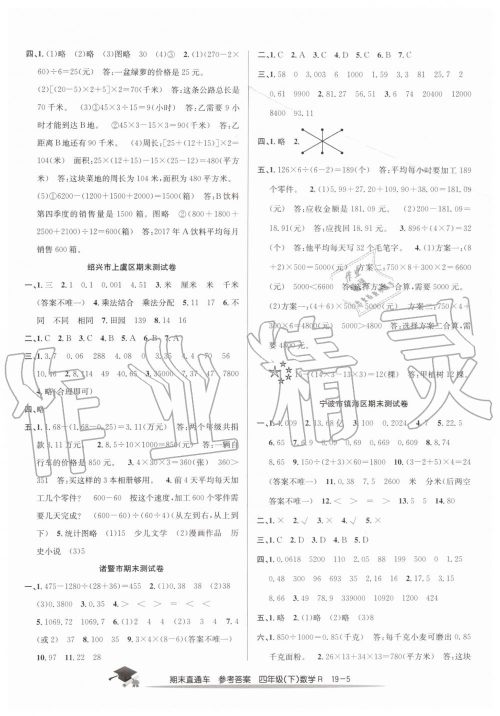 四、1. (1)略 (2)略 (3)图略 30 (4)③ 2. (1)(270-2×
60)÷6=25(元) 答:一盆绿萝的价格是25元。
(2)[(20-5)×2+5]×2=70(千米) 答:这条公路总长是
70千米。 (3)①45×3÷15=9(小时) 答:乙需要9小
时才能到达B地。 ②45×3-15×3=90(千米) 答:乙
距离B地还有90千米。 (4)周长:[25+(12+15)]×2=
104(米) 面积:25×(12+15)-15×(25-12)=480(平方
米) 答:这块菜地的周长为104米,面积是480平方米。
(5)①6200-(1200+1500+2000)=1500(箱) 答:B饮料
第四季度的销售量是1500箱。 图略 ②(800+1800+
2500+2100)÷12=600(箱) 答:2017年A饮料平均每月
销售600箱。
绍兴市上虞区期末测试卷
一、1. 三 2. 1 0.1 0.001 4.51 3. 米 厘米 米 千米
(答案不唯一) 4. 乘法结合 乘法分配 5. 11 17 6. 不
同 不同 相同 7. 田园 139 8. 14 16
二、1. C 2. B 3. C 4. B 5. C
三、1. 3.7 0.06 288 4.08 0 3.35 4.4 7 56
10.96 2. 8.114 49 40.65 3. 35000 7.37 47 7800
4.96(合理即可)
四、略
五、1. 1.68+(1.68-0.25)=3.11(万元) 答:两个年级共捐
款3.11万元。 2. 8.5÷10×1000=850(元) 答:一辆自
行车的价格是850元。 3. 4×30×3=360(张) 360>
351 答:买这样的3本相册够用。 4. 前4天平均每天加
工几个零件? 600-60 按这个速度,加工600个零件需
要几天完成? (600-60)÷(60÷4)(从左到右,从上到
下) 5. 统计图略 (1)15 少儿文学 (2)漫画作品 历
史小说 (3)5
诸暨市期末测试卷
一、1. 475-1280÷(428+36)=455 2. (1)0.38 (2)38
(3)0.380 3. 0.35 4. > < > = < <
5. 1069.72 1069.7 6. (1)2 4 4 (2)3 2 4
7. (2) 8. 140 40 9. 3×4×(8-6)(答案不唯一)
10. 97 11. 22 12. 28
二、1. C 2. A 3. C 4. D 5. C
三、1. 58 0 3.003 6 1000 1.59 3.3 81 25.7 2
0.61 9900 2. 81.27 56.51 3. 6 74 20400 12000
8400 93.11
四、1. 略 2.
五、1. 126×6÷(6-2)=189(个) 答:平均每小时要加工189
个零件。 2. (1)5.99+27.20+109.90+38.00=181.09
(元) 答:应收金额是181.09元。 (2)200-181.09=
18.91(元) 答:应找回18.91元。 3. 896÷(4×7)=32
(个) 答:他平均每天写32个毛笔字。 4. (1)方案一:(8
+2)×500=5000(元) 方案二:750×8=6000(元)
5000<6000 答:选择方案一合算,需要5000元。
(2)方案一:(4+6)×500=5000(元) 方案二:750×4+
300×6=4800(元) 5000>4800 答:选择方案二合算,需
要4800元。
宁波市镇海区期末测试卷
二、1. × 2. √ 3. × 4. √ 5. ×
三、1. C 2. D 3. B 4. D 5. D
四、1. 0.0618 5200 110 2.05 88 199 500 0 1.25
0.48 300 96 693 35 66 2.46 2. 17.5 3.15
8.66
五、1. 略 2. (1)略 (2)略 (3)8
六、1. 850÷1000=0.85(千克) 答:每千克小麦可磨面粉
0.85千克。 2. 26×13+34×13=780(元) 答:这次
期末直通车 参考答案 四年级(下)数学R 19-5
作业精灵